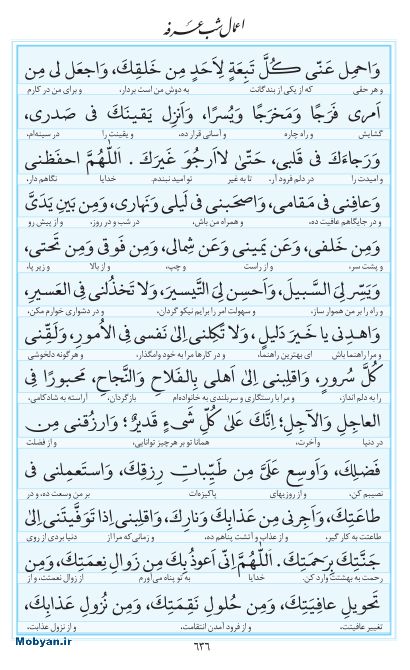 اعمال شب عرفه
وَاحمِل عَنّى كُلَّ تَبِعَةٍ لِاَحَدٍ مِن خَلقِكَ، وَاجعَل لى مِن
و هر حقى که از یکى از بندگانت به دوش من است بردار، و براى من در کارم
اَمرى فَرَجًا وَمَخرَجًا وَيُسرًا، وَاَنزِل يَقينَكَ فى صَدرى،
گشایش و راه چاره و آسانى قرار ده، و یقینت را در سینه‌ام،
وَرَجاءَكَ فى قَلبى، حَتّىٰ لااَرجُوَ غَيرَكَ. اَللّٰهُمَّ احفَظنى
و امیدت را در دلم فرود آر، تا به غیر تو امید نبندم. خدایا نگاهم دار،
وَعافِنى فى مَقامى، وَاصحَبنى فى لَيلى وَنَهارى، وَمِن بَينِ يَدَىَّ
و در جایگاهم عافیت ده، و همراه من باش، در شب و در روز، و از پیش رو
وَمِن خَلفى، وَعَن يَمينى وَعَن شِمالى، وَمِن فَوقى وَمِن تَحتى،
و پشت سر، و از راست و چپ، و از بالا و زیر پا،
وَيَسِّر لِىَ السَّبيلَ، وَاَحسِن لِىَ التَّيسيرَ، وَلا تَخذُلنى فِى العَسيرِ،
و راه را بر من هموار ساز، و سهولت امر را برایم نیکو گردان، و در دشوارى خوارم مکن،
وَاهدِنى يا خَيرَ دَليلٍ، وَلا تَكِلنى اِلىٰ نَفسى فِى الاُمورِ، وَلَقِّنى
و مرا راهنما باش اى بهترین راهنما، و در کارها مرا به خود وامگذار، و هر گونه دلخوشى
كُلَّ سُرورٍ، وَاقلِبنى اِلىٰ اَهلى بِالفَلاحِ وَالنَّجاحِ، مَحبورًا فِى
را به دلم انداز، و مرا با رستگارى و سربلندى به خانواده‌ام بازگردان، آراسته به شادکامى،
العاجِلِ وَالآجِلِ؛ اِنَّكَ عَلىٰ كُلِّ شَىءٍ قَديرٌ؛ وَارزُقنى مِن
در دنیا و آخرت، همانا تو بر هر چیز توانایى، و از فضلت
فَضلِكَ، وَاَوسِع عَلَىَّ مِن طَيِّباتِ رِزقِكَ، وَاستَعمِلنى فى
نصیبم کن، و از روزیهاى پاکیزه‌ات بر من وسعت ده، و در
طاعَتِكَ، وَاَجِرنى مِن عَذابِكَ وَنارِكَ، وَاقلِبنى اِذا تَوَفَّيتَنى اِلىٰ
طاعتت به کار گیر، و از عذاب و آتشت پناهم ده، و زمانى که مرا از دنیا بردى از روى
جَنَّتِكَ بِرَحمَتِكَ. اَللّٰهُمَّ اِنّى اَعوذُ بِكَ مِن زَوالِ نِعمَتِكَ، وَمِن
رحمت به بهشتت وارد کن. خدایا به تو پناه مى‌آورم از زوال نعمتت، و از
تَحويلِ عافِيَتِكَ، وَمِن حُلولِ نَقِمَتِكَ، وَمِن نُزولِ عَذابِكَ،
تغییر عافیتت، و از فرود آمدن انتقامت، و از نزول عذابت،
٦٣٦
Mobyan.ir